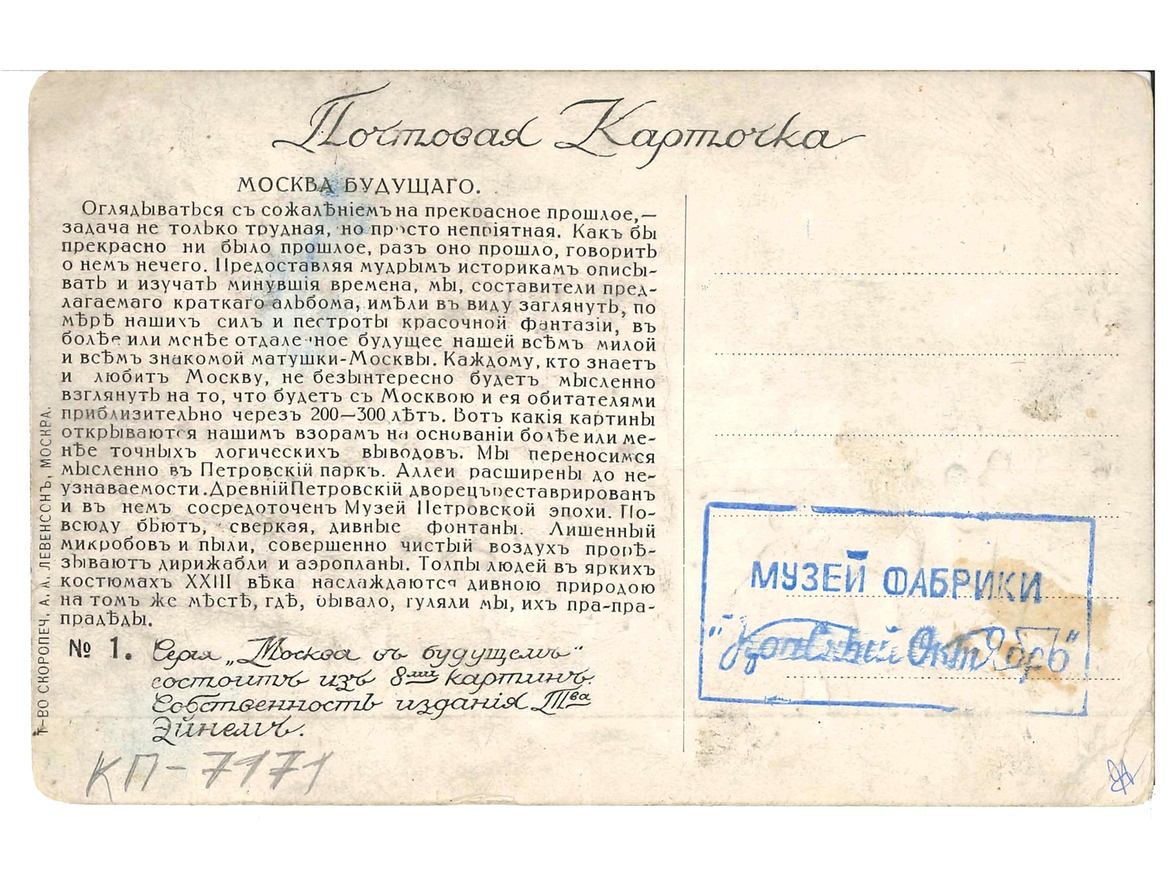 Почтовая Карточка
МОСКВА БУДУЩАГО.
Оглядываться съ сожалѣніемъ на прекрасное прошлое,—
задача не только трудная, но просто непріятная. Какъ бы
прекрасно ни было прошлое, разъ оно прошло, говорить
о немъ нечего. Предоставляя мудрымъ историкамъ описы-
вать и изучать минувшія времена, мы, составители пред-
лагаемаго краткаго альбома, имѣли въ виду заглянуть, по
мѣрѣ нашихъ силъ и пестроты красочной фантазіи, въ
болѣе или менѣе отдаленное будущее нашей всѣмъ милой
и всѣмъ знакомой матушки-Москвы. Каждому, кто знаетъ
и любитъ Москву, не безынтересно будетъ мысленно
взглянуть на то, что будетъ съ Москвою и ея обитателями
приблизительно черезъ 200—300 лѣтъ. Вотъ какія картины
открываются нашимъ взорамъ на основаніи болѣе или ме-
нѣе точныхъ логическихъ выводовъ. Мы переносимся
мысленно въ Петровскій паркъ. Аллеи расширены до не-
узнаваемости. Древній Петровскій дворецъ реставрированъ
и въ немъ сосредоточенъ Музей Петровской эпохи. По-
всюду бьютъ, сверкая, дивные фонтаны. Лишенный
микробовъ и пыли, совершенно чистый воздухъ прорѣ-
зываютъ дирижабли и аэропланы. Толпы людей въ яркихъ
костюмахъ XXIII вѣка наслаждаются дивною природою
на томъ же мѣстѣ, гдѣ, бывало, гуляли мы, ихъ пра-пра-
прадѣды.
№ 1. Серія „Москва въ будущемъ"
состоитъ изъ 8ми картинъ.
Собственность изданія Тва
Эйнемъ.
КП-7171
Т-ВО СКОРОПЕЧ. А. А. ЛЕВЕНСОНЪ, МОСКВА.
МУЗЕЙ ФАБРИКИ
"Красный Октябрь"